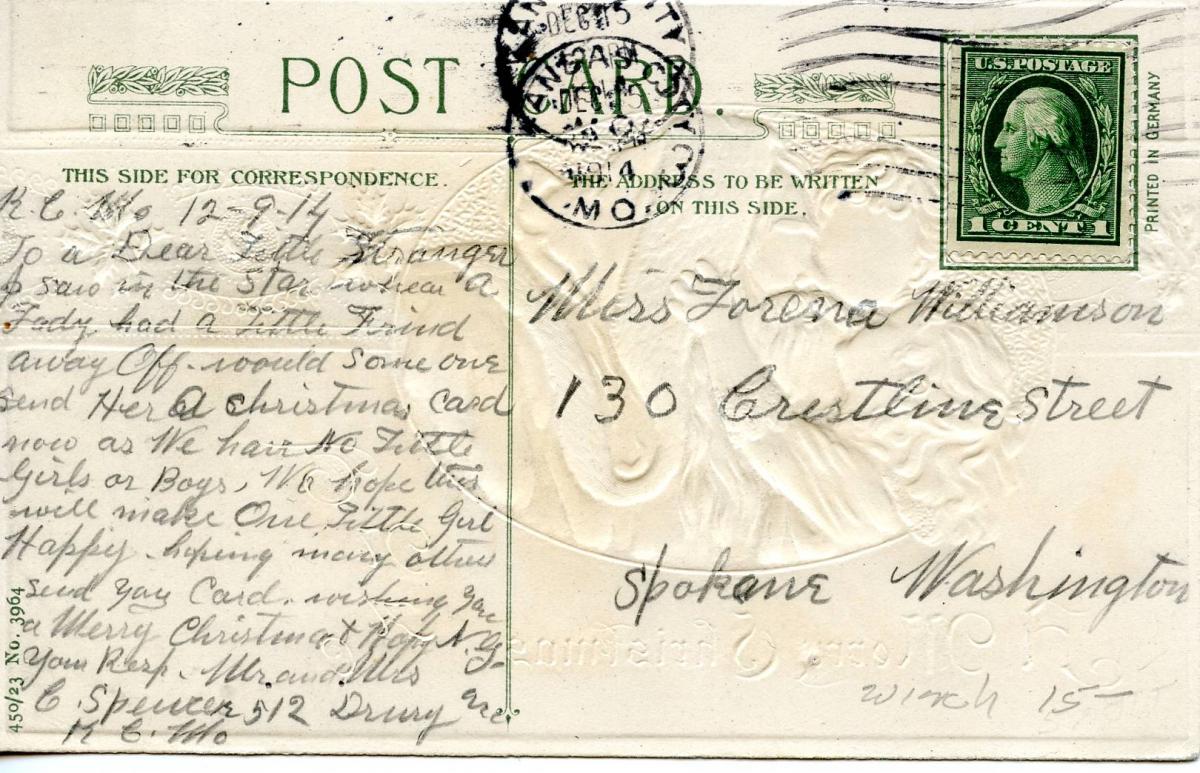 POST CARD.
THIS SIDE FOR CORRESPONDENCE.
THE ADDRESS TO BE WRITTEN
ON THIS SIDE.
KANSAS CITY
DEC 15
12 AM
1914
MO.
U.S. POSTAGE
1 CENT 1
PRINTED IN GERMANY
K C. Mo 12-9-14
To a Dear Little Stranger
I saw in the Star whear A
Lady had a Little Frind
away Off. would Some one
send Her A christmas Card
now as We have No Little
Girls or Boys, We hope this
will make One Little Girl
Happy. hoping many others
send you Card. wishing you
a Merry Christmas & Hapy N. Y.
Your Resp. Mr and Mrs
C Spencer 512 Drury ave
K C. Mo
450/23 No. 3964
Miss Lorena Williamson
130 Crestline Street
Spokane Washington
A Merry Christmas
15-